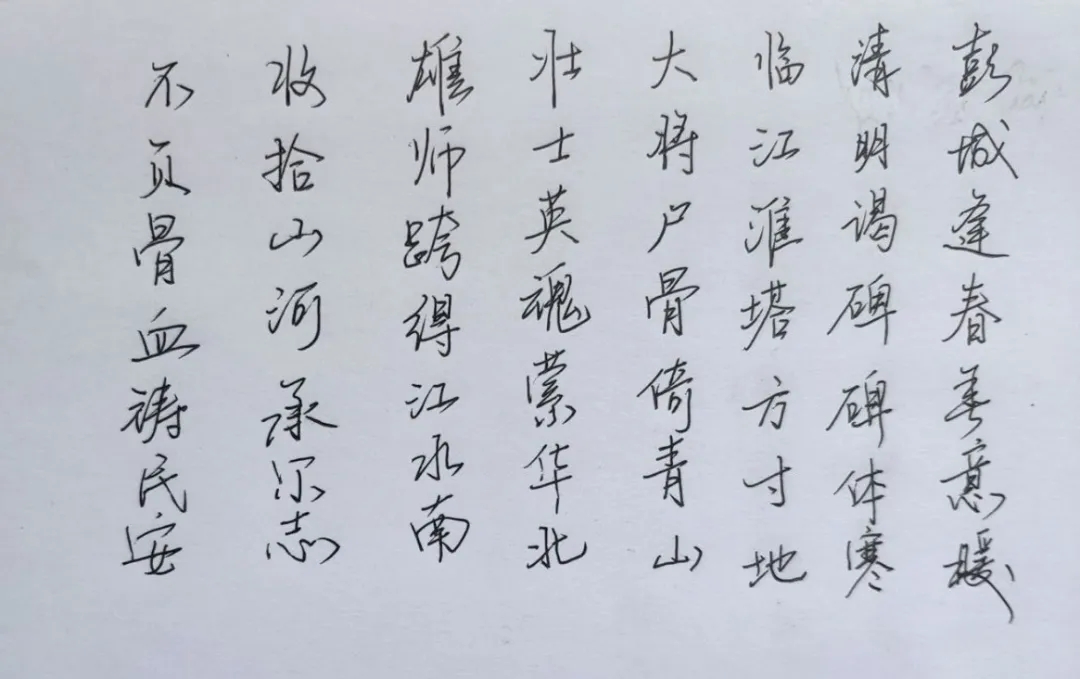 彭城逢春春意暖
清明谒碑碑体寒
临江淮塔方寸地
大将尸骨倚青山
壮士英魂萦华北
雄师跨得江水南
收拾山河承尔志
不负骨血祷民安